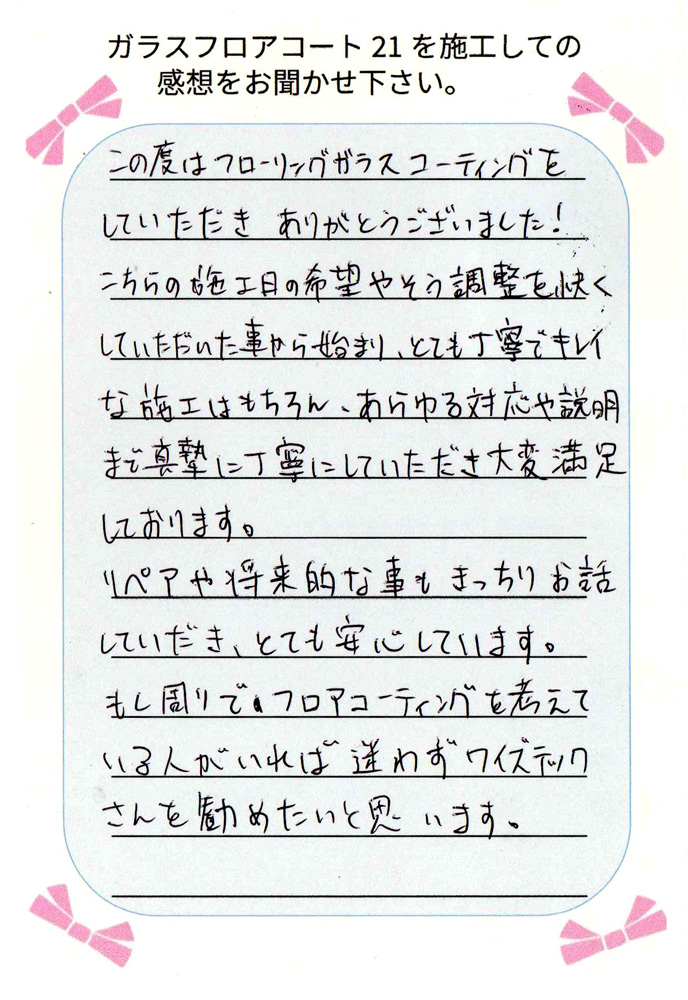 ガラスフロアコート21を施工しての
感想をお聞かせ下さい。
この度はフローリングガラスコーティングを
していただき ありがとうございました!
こちらの施工日の希望やそう調整を快く
していただいた事から始まり、とても丁寧でキレイ
な施工はもちろん、あらゆる対応や説明
まで真摯に丁寧にしていただき大変満足
しております。
リペアや将来的な事もきっちりお話
していだき、とても安心しています。
もし周りでフロアコーティングを考えて
いる人がいれば迷わずワイズテック
さんを勧めたいと思います。